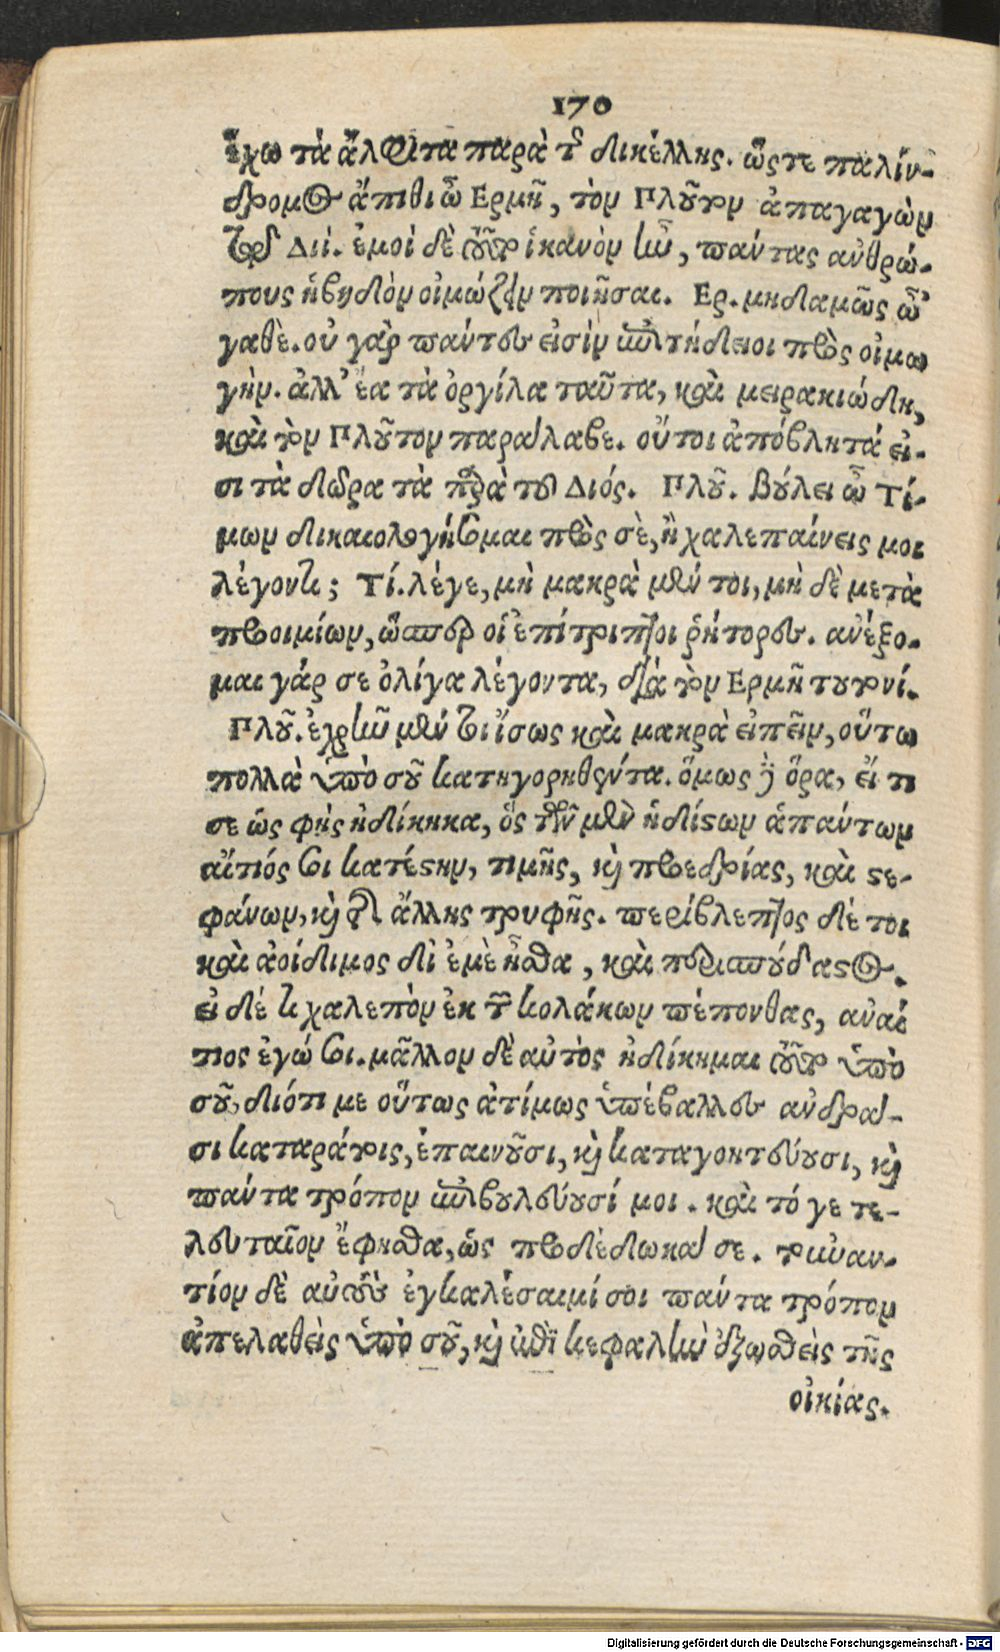 170
ἔχω τὰ ἄλφιτα παρὰ τῆς δικέλλης. ὥςτε παλίν-
δρομος ἄπιθι ὦ Ερμῆ, τὸν Πλοῦτον ἀπαγαγὼν
τῷ Διί. ἐμοὶ δὲ τοῦτο ἱκανὸν ἦν, πάντας ἀνθρώ-
πους ἡβηδὸν οἰμώζειν ποιῆσαι. Ερ. μηδαμῶς ὦ
γαθὲ. οὐ γὰρ πάντες εἰσὶν ἐπιτήδειοι πρὸς οἰμω
γήν. ἀλλ' ἔα τὰ ὀργίλα ταῦτα, καὶ μειρακιώδη,
καὶ τὸν Πλοῦτον παράλαβε. οὔτοι ἀπόβλητά εἰ-
σι τὰ δῶρα τὰ παρὰ τοῦ Διός. Πλοῦ. βούλει ὦ Τί-
μων δικαιολογήσομαι πρὸς σὲ, ἢ χαλεπαίνεις μοι
λέγοντι; Τί. λέγε, μὴ μακρὰ μέν τοι, μὴ δὲ μετὰ
προοιμίων, ὥσπερ οἱ ἐπίτριπτοι ῥήτορες. ἀνέξο-
μαι γάρ σε ὀλίγα λέγοντα, διὰ τὸν Ερμῆν τουτονί.
Πλοῦ. ἐχρῆν μέν τι ἴσως καὶ μακρὰ εἰπεῖν, οὕτω
πολλὰ ὑπὸ σοῦ κατηγορηθέντα. ὅμως δὲ ὅρα, εἴ τι
σε ὡς φὴς ἠδίκηκα, ὃς τῶν μὲν ἡδίστων ἁπάντων
αἴτιός σοι κατέστην, τιμῆς, καὶ προεδρίας, καὶ στε-
φάνων, καὶ τῆς ἄλλης τρυφῆς. περίβλεπτος δέ τοι
καὶ ἀοίδιμος δὶ ἐμὲ ἦσθα, καὶ περισπούδαστος.
εἰ δέ τι χαλεπὸν ἐκ τῶν κολάκων πέπονθας, ἀναί
τιος ἐγώ σοι. μᾶλλον δὲ αὐτὸς ἠδίκημαι τοῦτο ὑπὸ
σοῦ, διότι με οὕτως ἀτίμως ὑπέβαλλες ἀνδρά-
σι καταράτοις, ἐπαινοῦσι, καὶ καταγοητεύουσι, καὶ
πάντα τρόπον ἐπιβουλεύουσί μοι. καὶ τό γε τε-
λευταῖον ἔφησθα, ὡς προδέδωκά σε. τοὐναν-
τίον δὲ αὐτὸς ἐγκαλέσαιμί σοι πάντα τρόπον
ἀπελαθεὶς ὑπὸ σοῦ, καὶ ἐπὶ κεφαλὴν ἐξωσθεὶς τῆς
οἰκίας.
Digitalisierung gefördert durch die Deutsche Forschungsgemeinschaft - DFG